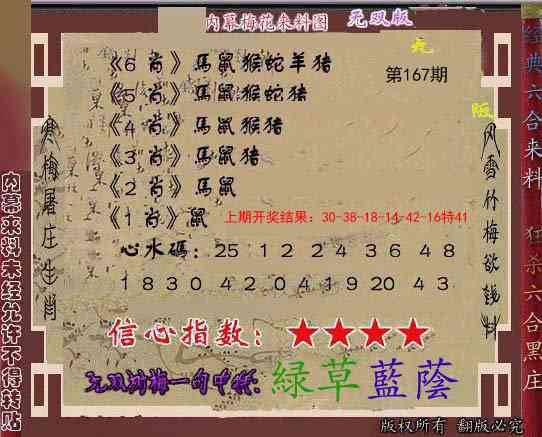 内幕梅花来料图 无双版
《6肖》馬鼠猴蛇羊猪
第167期
《5肖》馬鼠猴蛇猪
《4肖》馬鼠猴猪
《3肖》馬鼠猪
《2肖》馬鼠
《1肖》鼠
上期开奖结果：30-38-18-14-42-16特41
心水碼：25 12 24 36 48
18 30 42 04 19 20 43
信心指数：★★★★
无双鸿梅一句中特:綠草藍蔭
版权所有 翻版必究
寒梅屠庄生肖
风雪竹梅欲钱料
内幕来料未经允许不得转贴
经典六合来料 狂杀六合黑庄